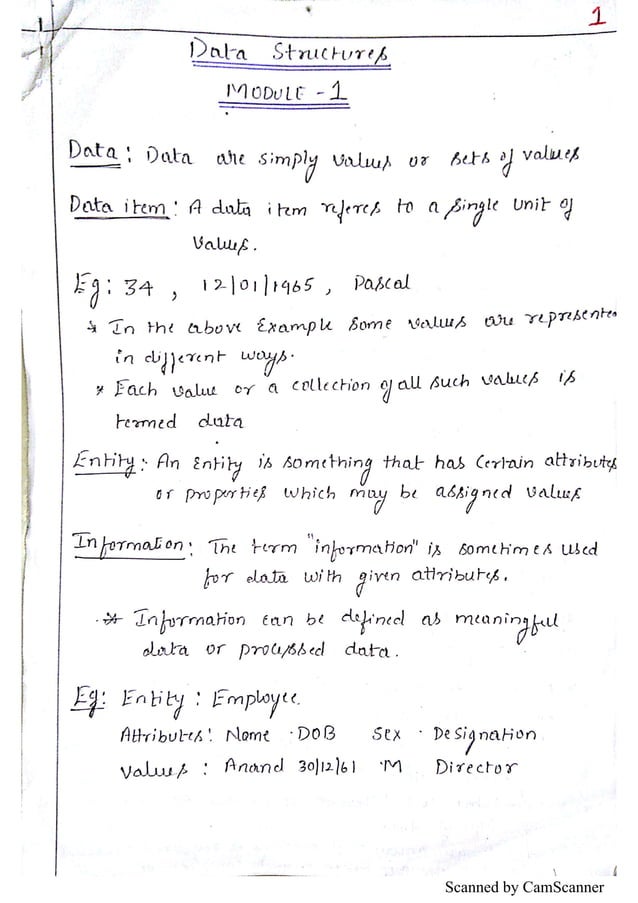 1
Data Structures
MODULE - 1
Data : Data are simply values or sets of values
Data item : A data item referes to a single unit of
values.
Eg : 34 , 12/01/1965 , Pascal
* In the above Example some values are represente
in different ways.
* Each value or a collection of all such values is
termed data
Entity : An Entity is something that has certain attributes
or properties which may be assigned values
Information : The term "information" is sometimes used
for data with given attributes.
* Information can be defined as meaningful
data or processed data.
Eg: Entity : Employee.
Attributes : Name DOB Sex Designation
Values : Anand 30/12/61 M Director
Scanned by CamScanner